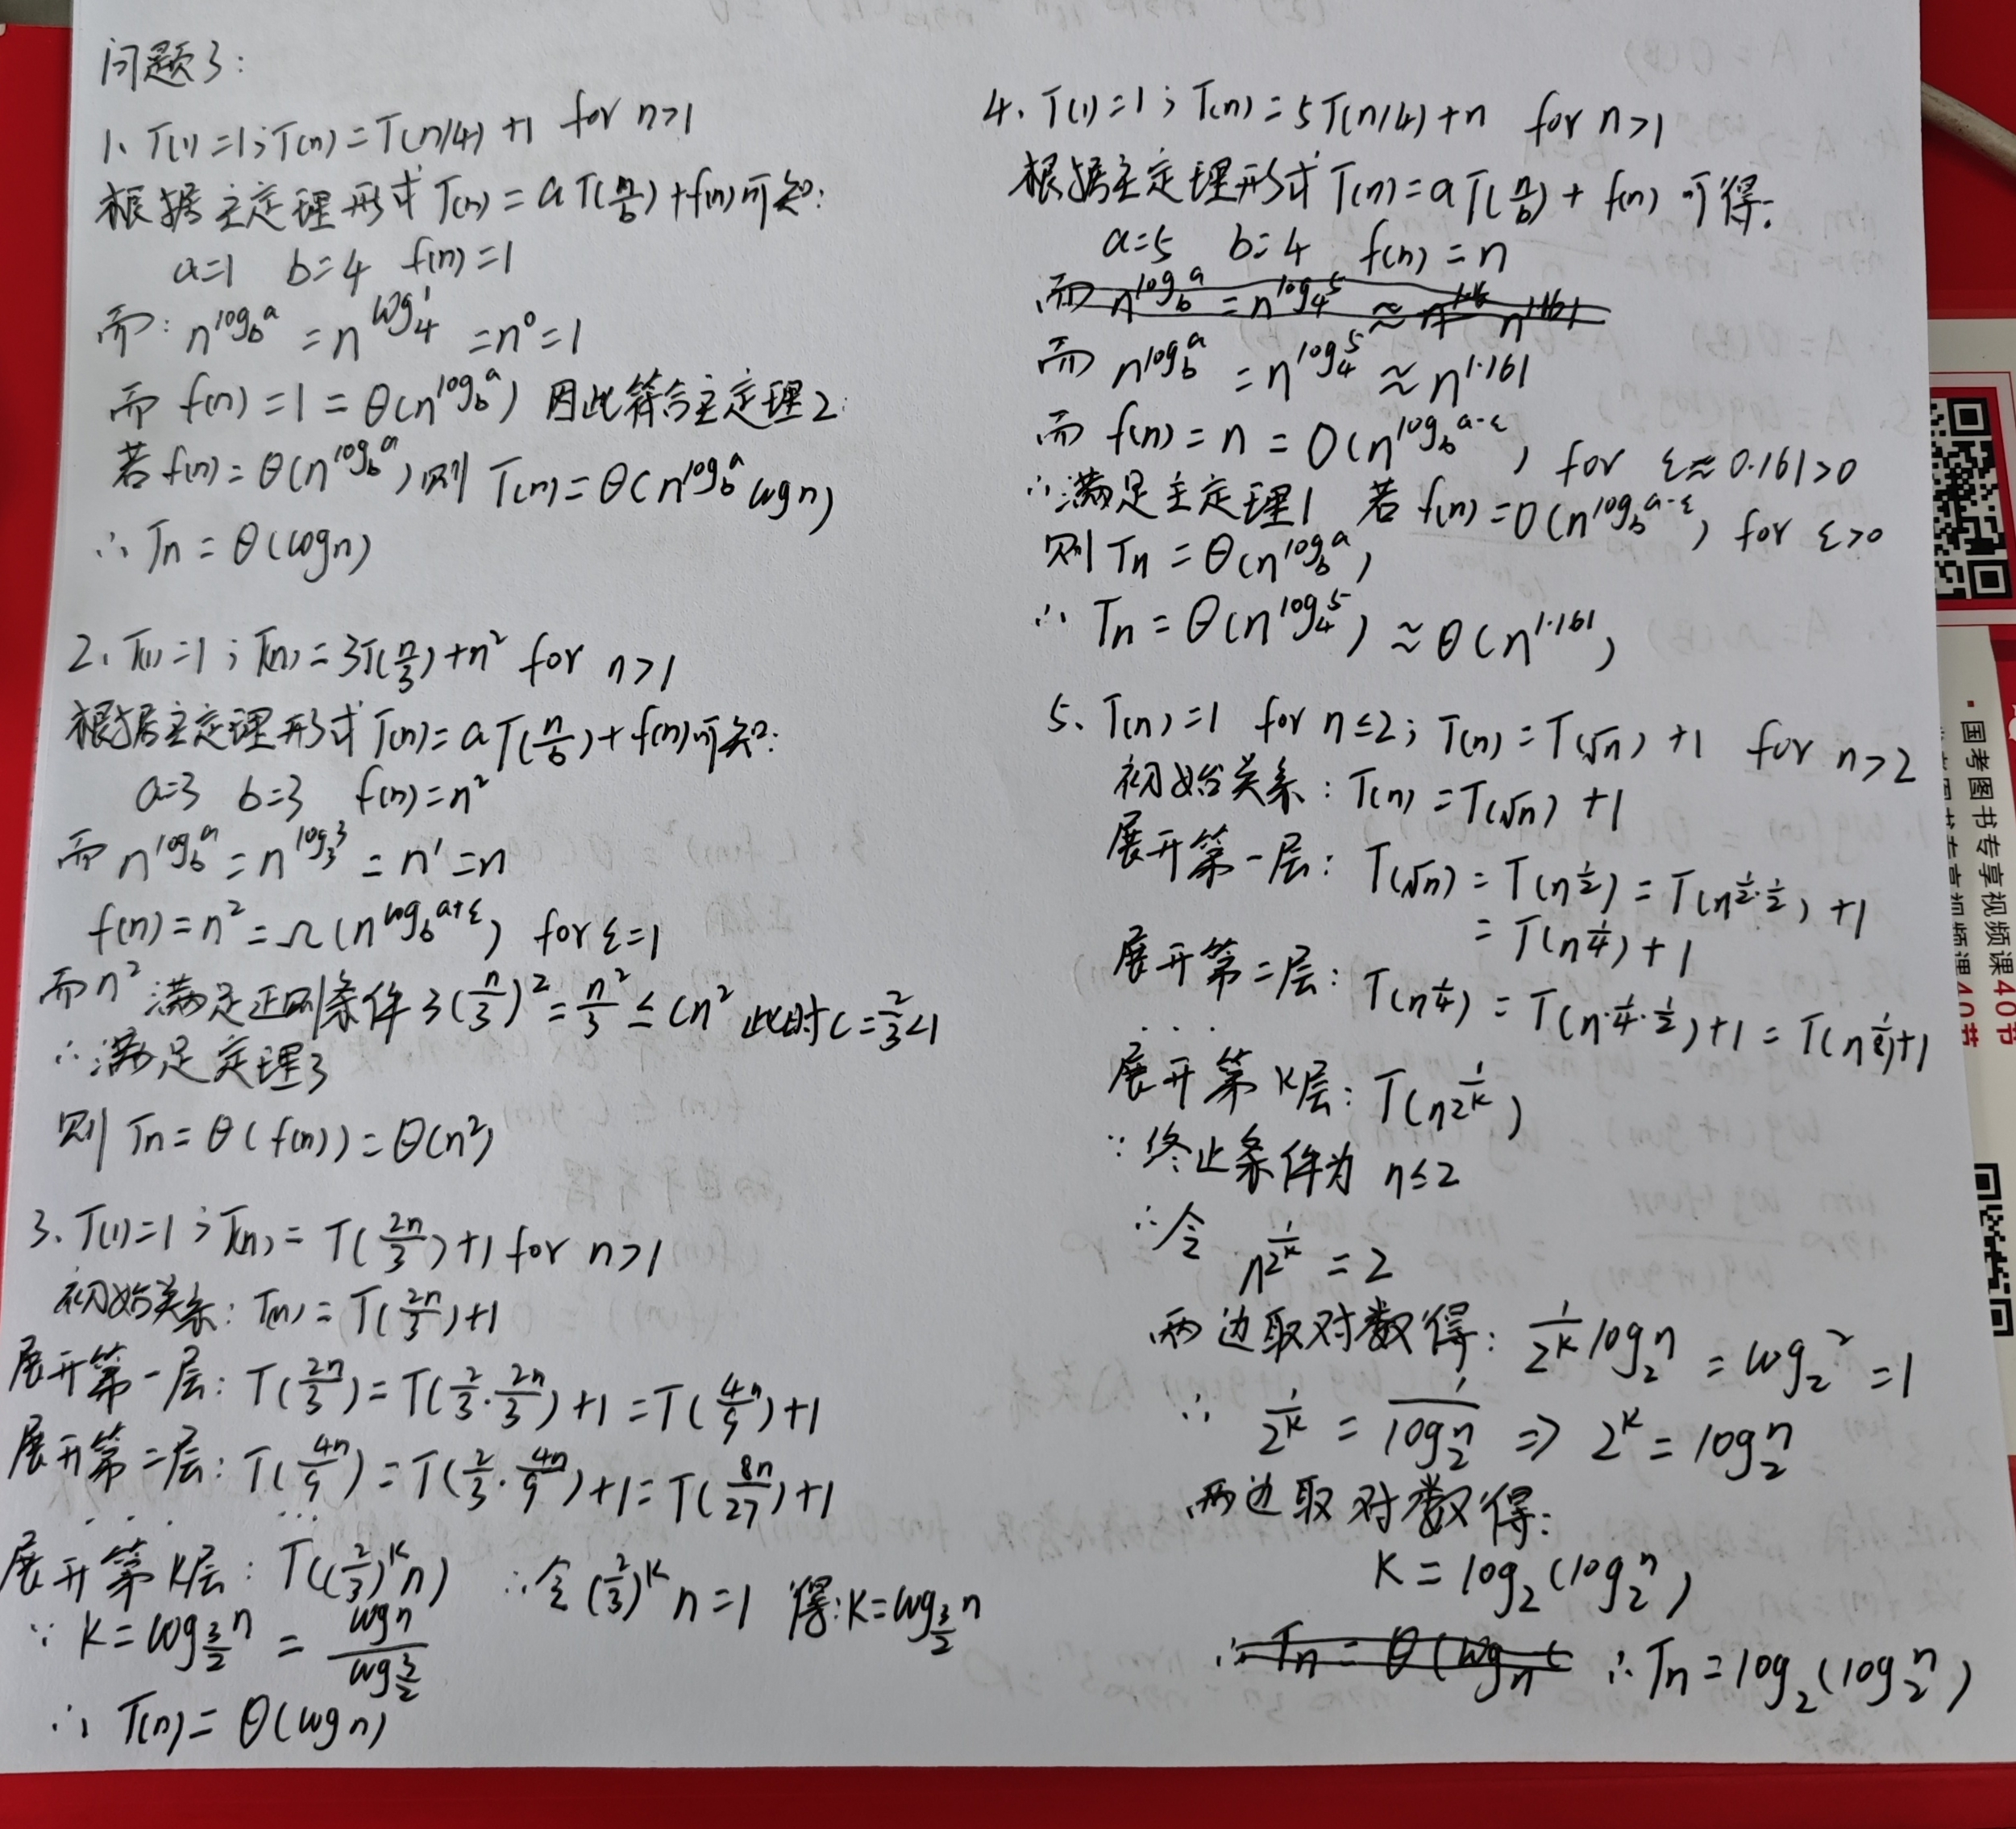 问题3:
1、T(1)=1;T(n)=T(n/4)+1 for n>1
根据主定理形式 T(n)=aT(n/b)+f(n)可知:
a=1 b=4 f(n)=1
而: n^{log_b^a} = n^{log_4^1} = n^0 = 1
而 f(n)=1=θ(n^{log_b^a}) 因此符合主定理2:
若 f(n)=θ(n^{log_b^a}) 则 T(n)=θ(n^{log_b^a} logn)
∴ Tn = θ(logn)
2、T(1)=1; T(n)=3T(n/3)+n² for n>1
根据主定理形式 T(n)=aT(n/b)+f(n)可知:
a=3 b=3 f(n)=n²
而 n^{log_b^a} = n^{log_3^3} = n^1 = n
f(n)=n²=Ω(n^{log_b^{a+ε}}) for ε=1
而n²满足正则条件 3(n/3)²=n²/3≤cn² 此时c=2/3<1
∴满足定理3
则 Tn=θ(f(n))=θ(n²)
3、T(1)=1; T(n)=T(2n/3)+1 for n>1
初始关系: T(n)=T(2n/3)+1
展开第一层: T(2n/3)=T(2/3·2n/3)+1=T(4n/9)+1
展开第二层: T(4n/9)=T(2/3·4n/9)+1=T(8n/27)+1
... ...
展开第K层: T((2/3)^K n) ∴令(2/3)^K n=1 得:K=log_{3/2}n
∵ K=log_{3/2}n = logn/log3/2
∴ T(n)=θ(logn)
4、T(1)=1; T(n)=5T(n/4)+n for n>1
根据主定理形式 T(n)=aT(n/b)+f(n)可得:
a=5 b=4 f(n)=n
而 n^{log_b^a} = n^{log_4^5} ≈ n^{1.161}
而 n^{log_b^a} = n^{log_4^5} ≈ n^{1.161}
而 f(n)=n=O(n^{log_b^{a-ε}}) for ε≈0.161>0
∴满足主定理1 若 f(n)=O(n^{log_b^{a-ε}}) for ε>0
则 Tn=θ(n^{log_b^a})
∴ Tn=θ(n^{log_4^5})≈θ(n^{1.161})
5、T(n)=1 for n≤2; T(n)=T(√n)+1 for n>2
初始关系: T(n)=T(√n)+1
展开第一层: T(√n)=T(n^{1/2})=T(n^{1/2·1/2})+1
=T(n^{1/4})+1
展开第二层: T(n^{1/4})=T(n^{·1/4·1/2})+1=T(n^{1/8})+1
...
展开第K层: T(n^{1/2^K})
∵终止条件为 n≤2
∴令 n^{1/2^K}=2
两边取对数得: 1/2^K log_2^n = log_2^2 = 1
∴ 1/2^K = 1/log_2^n ⇒ 2^K = log_2^n
两边取对数得:
K=log_2(log_2^n)
∴Tn=θ(log n ∴Tn=log_2(log_2^n)
国考图书专享视频课40节